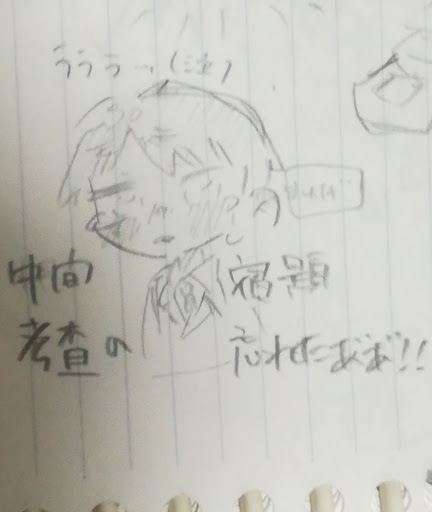 ううう…(泣)
中間
考査の
宿題
忘れたぁぁ!!